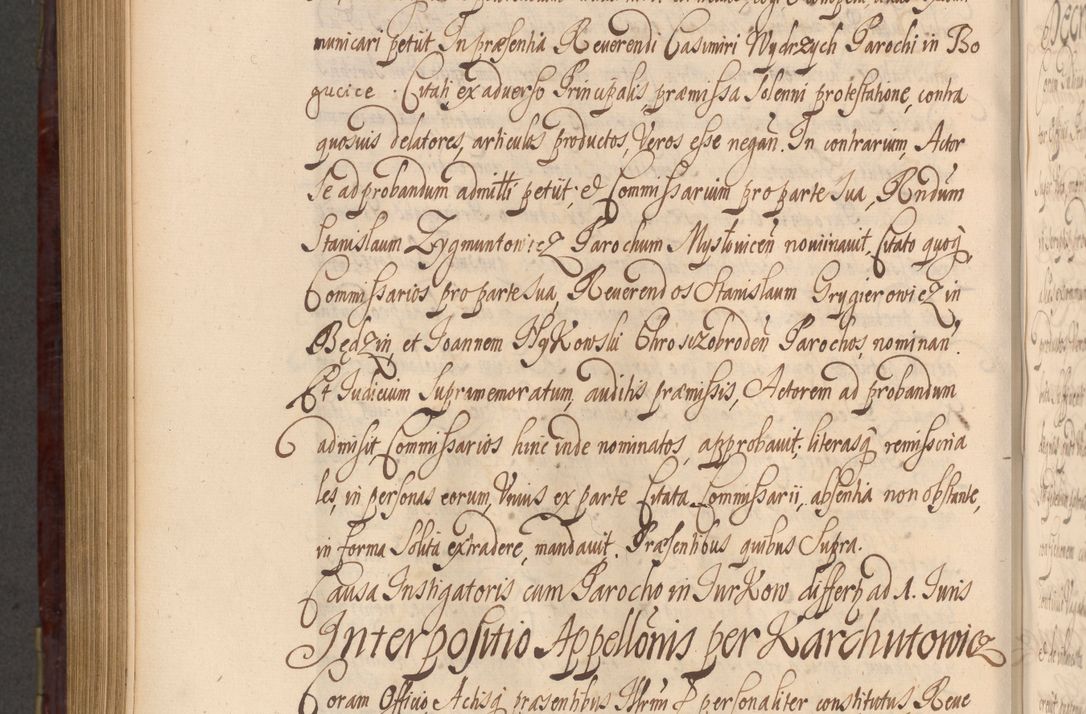 municari petiit. In præsentia Reverendi Casimiri Wydrzych Parochi in Bo
gucice. Citati ex adverso Principalis præmissa Solenni protestatione, contra
quosvis delatores, articulos productos, Veros esse negan̄. In contrarium, Actor
se ad probandum admitti petiit, et Commissarium pro parte sua, Rndūm
Stanislaum Zygmuntowicz Parochum Mysłovicen̄ nominavit, Citatq quoq̄,
Commissarios pro parte sua, Reverendos Stanislaum Grygierowicz in
Będzin, et Joannem Bykowski Chrosczobroden̄ Parochos, nominan̄.
Et Judicium supramemoratum, auditis præmissis, Actorem ad probandum
admisit, Commissarios hinc inde nominatos, approbavit. literasq̄ remissoria
les, in personas eorum, Unius ex parte Citata Commissarii, absentia non obstante,
in forma Solita extradere, mandavit. Præsentibus quibus Supra.
Causa Instigatoris cum Parocho in Jurkow differt ad 1. Juris
Interpositio Appellōnis per Karchutowicz
Coram Officio, Actisq̄ præsentibus Illrīm D personaliter constitutus, Reve